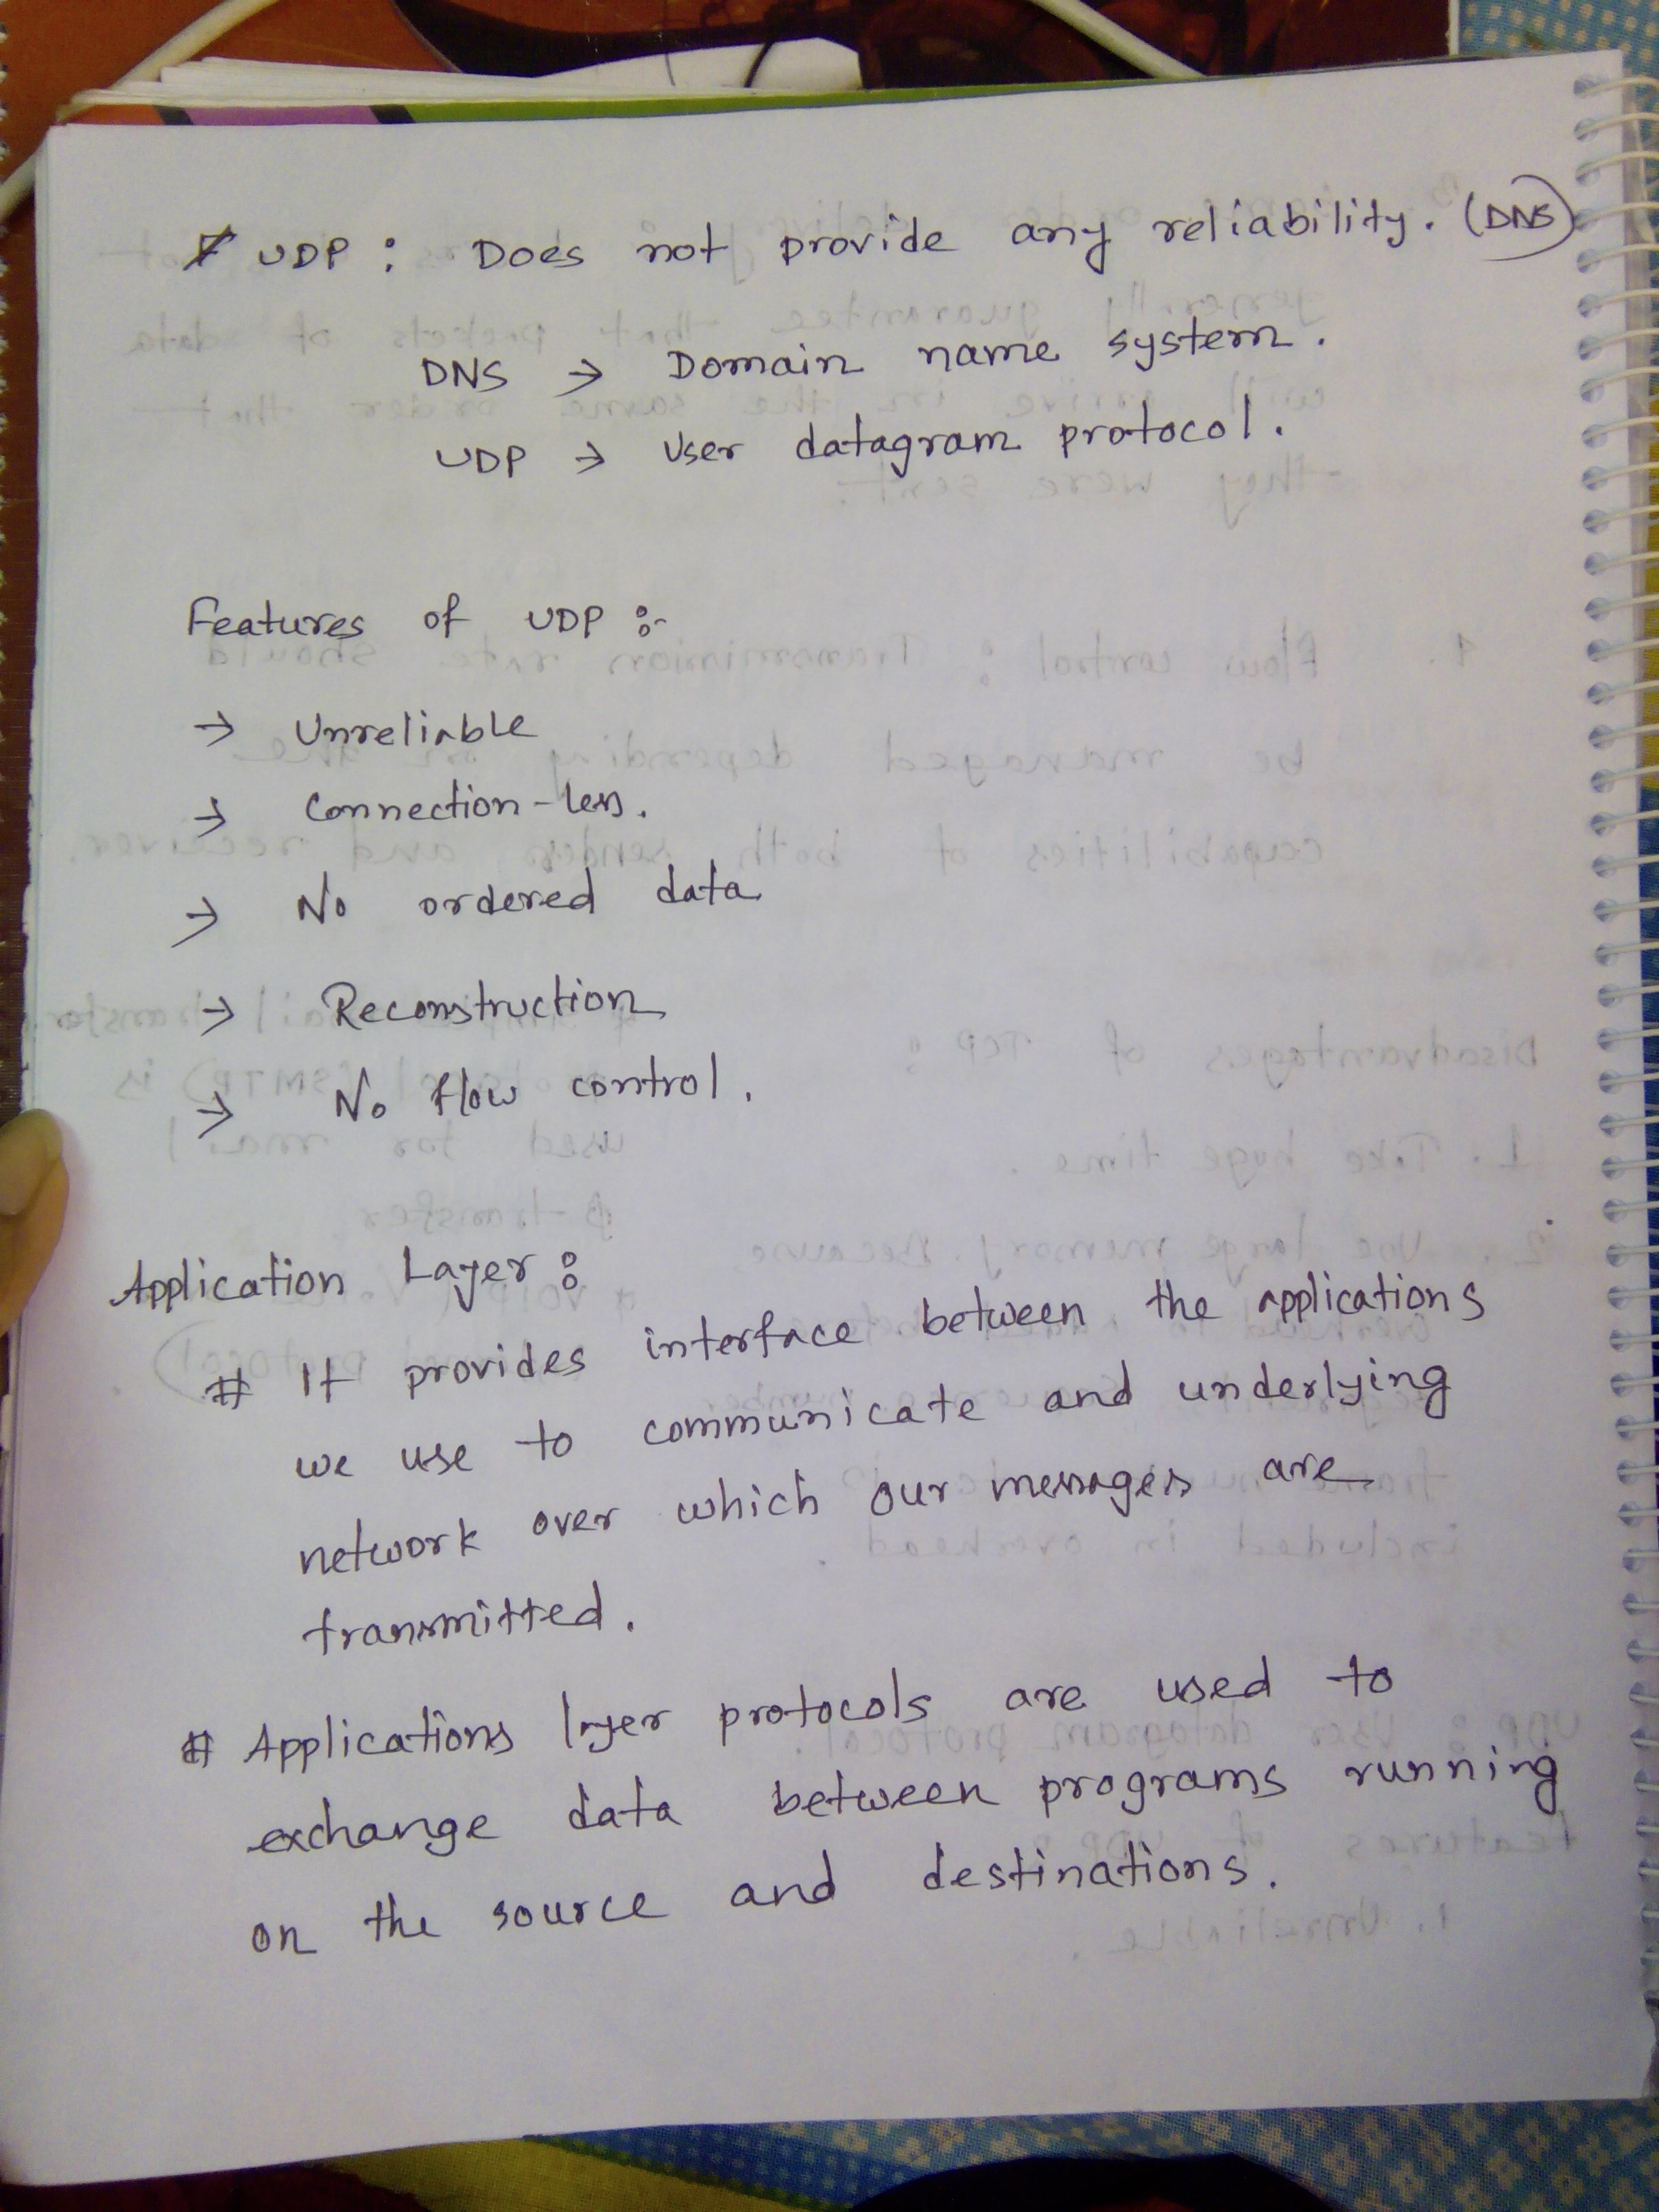 # UDP : Does not provide any reliability. (DNS)
DNS → Domain name system.
UDP → User datagram protocol.
Features of UDP :-
→ Unreliable
→ Connection-less.
→ No ordered data
→ Reconstruction
→ No flow control.
Application Layer :
# It provides interface between the applications
we use to communicate and underlying
network over which our messages are
transmitted.
# Applications layer protocols are used to
exchange data between programs running
on the source and destinations.